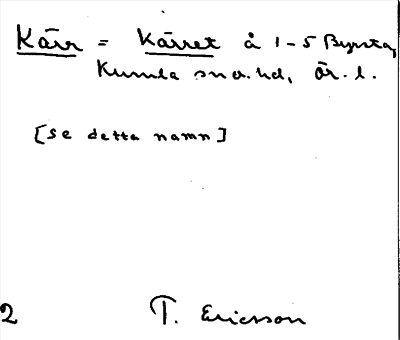 Kärr = Kärret å 1-5 Byrsta,
Kumla sn o. hd, Ör. l.
[se detta namn]
2 T. Ericsson